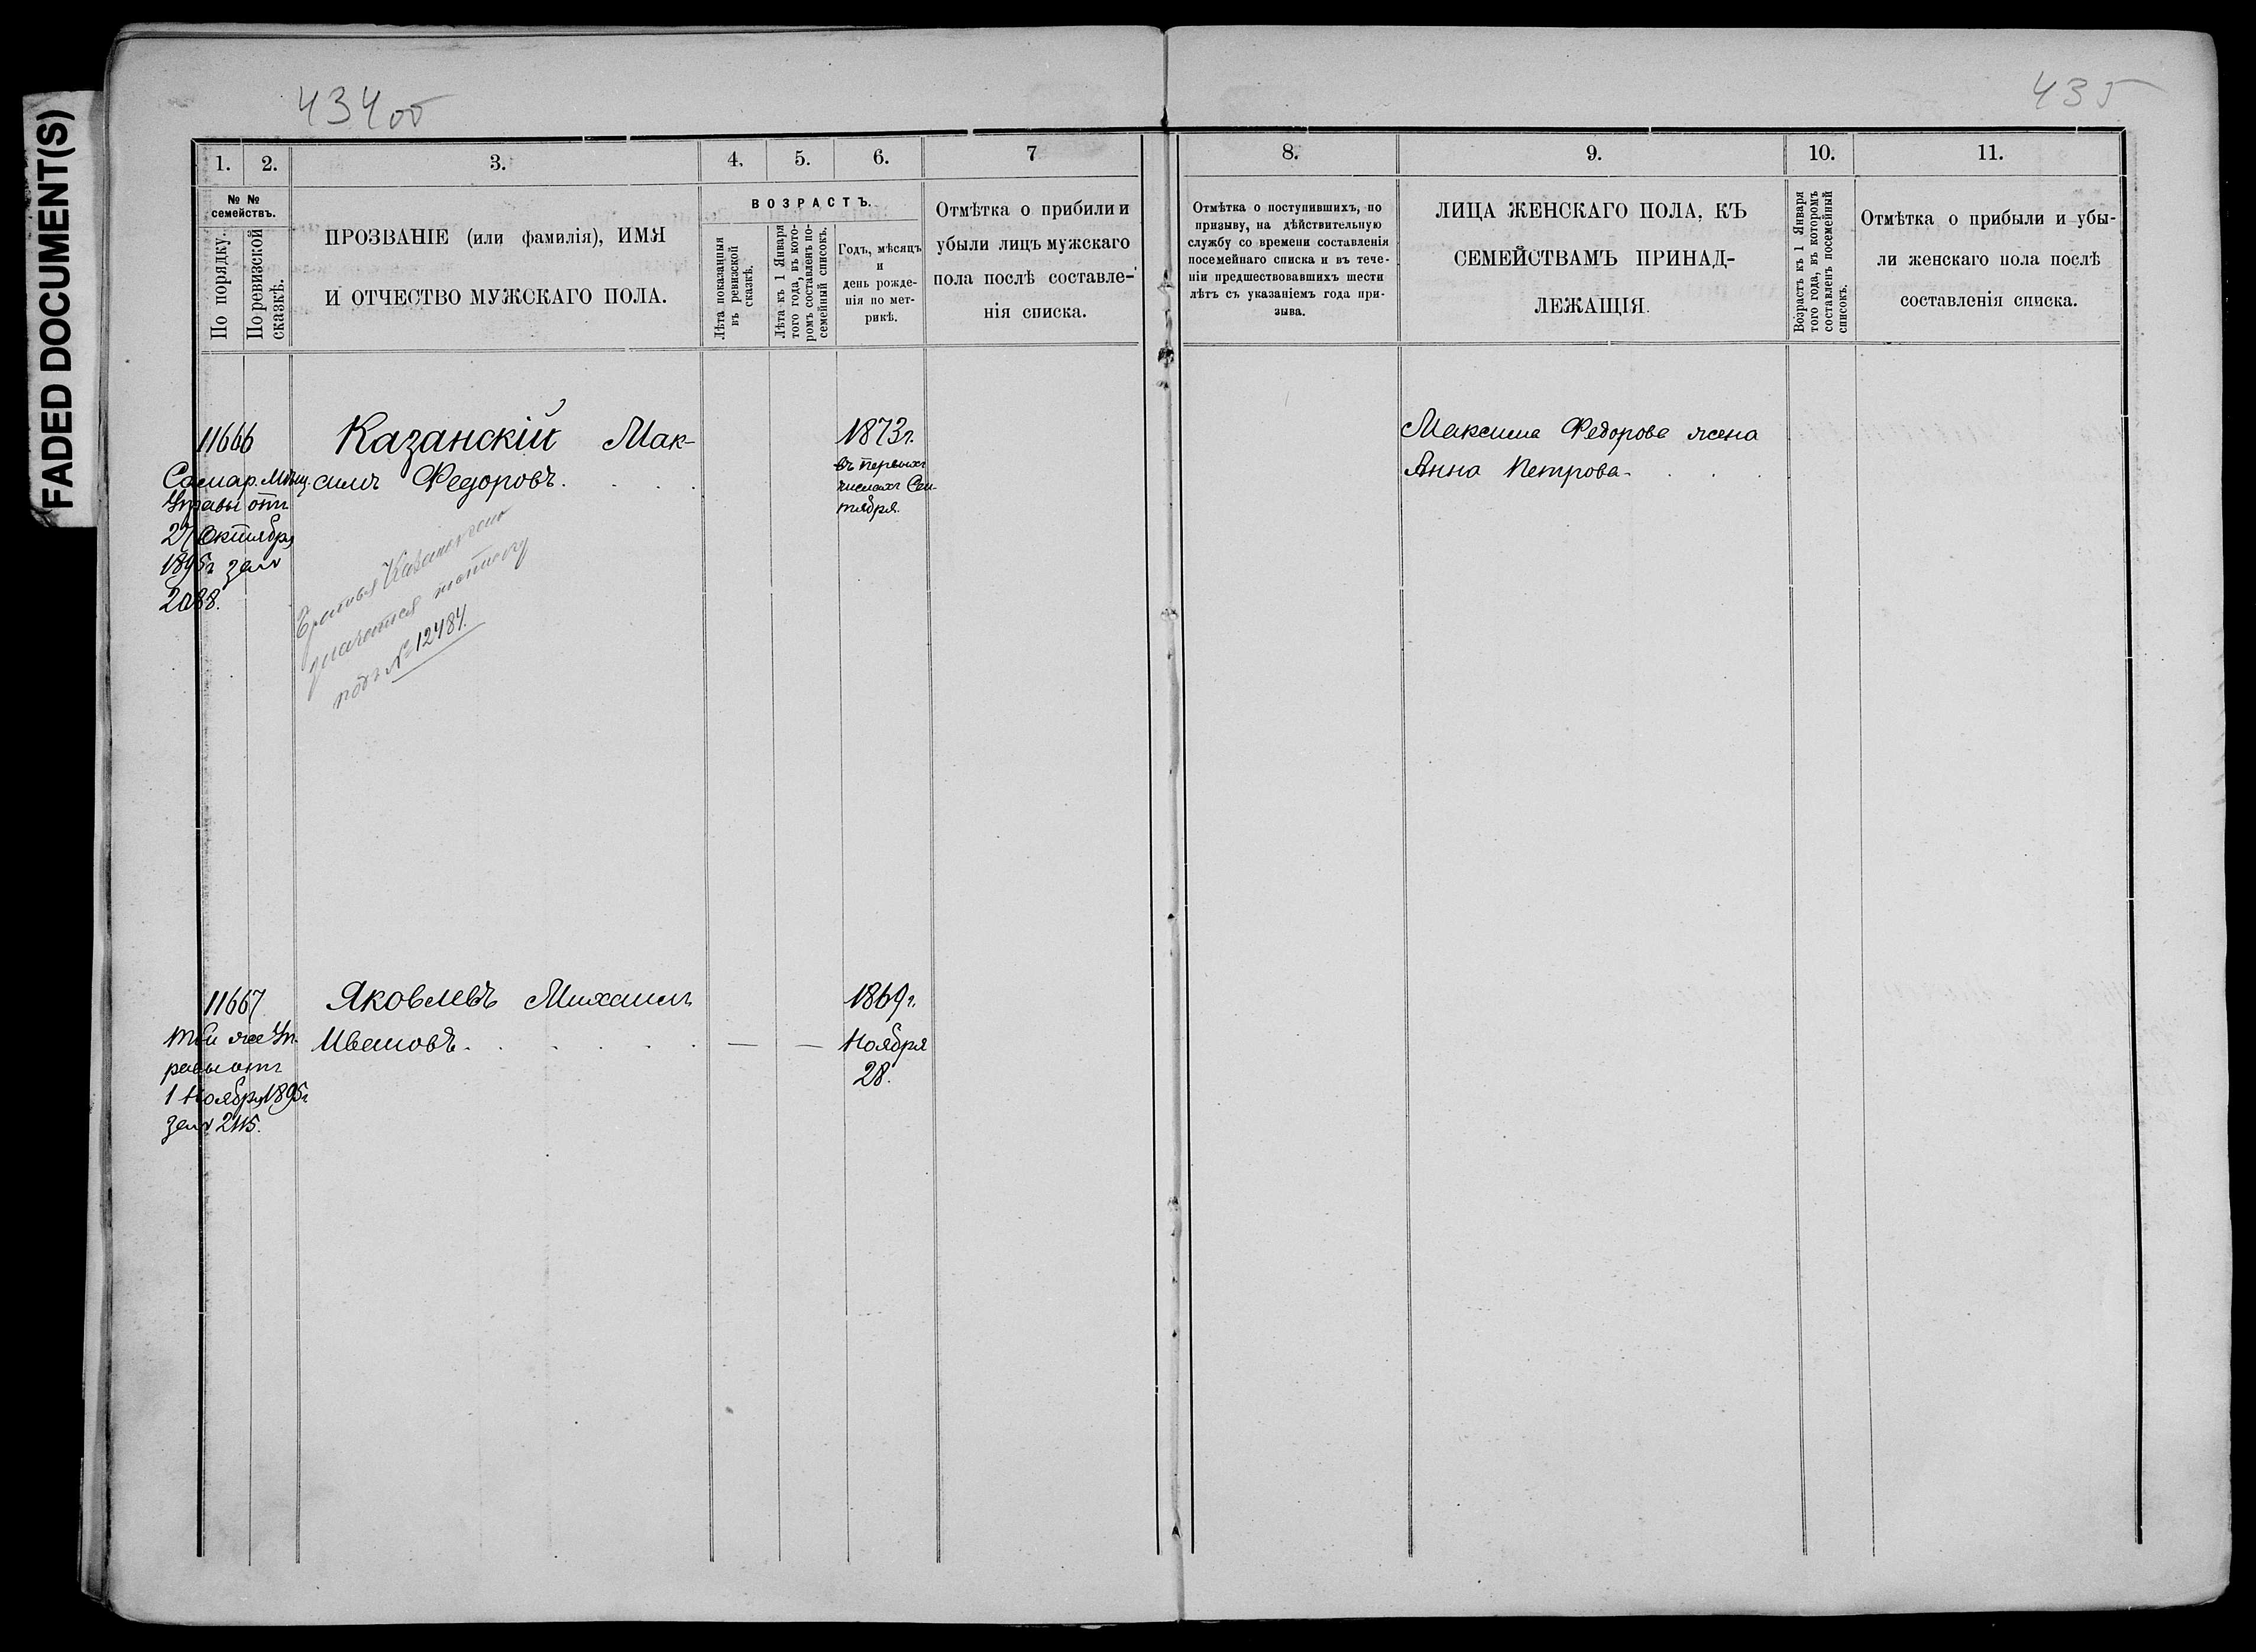 FADED DOCUMENT(S)
434 об
435
1.
2.
3.
4.
5.
6.
7
8.
9.
10.
11.
№ №
семействъ.
По порядку.
По ревизской
сказкѣ.
ПРОЗВАНІЕ (или фамилія), ИМЯ
И ОТЧЕСТВО МУЖСКАГО ПОЛА.
ВОЗРАСТЪ.
Лѣта показанныя
въ ревизской
сказкѣ.
Лѣта къ 1 Января
того года, въ кото-
ромъ составленъ по-
семейный списокъ.
Годъ, мѣсяцъ
и
день рожде-
нія по мет-
рикѣ.
Отмѣтка о прибили и
убыли лицъ мужскаго
пола послѣ составле-
нія списка.
Отмѣтка о поступившихъ, по
призыву, на дѣйствительную
службу со времени составленія
посемейнаго списка и въ тече-
ніи предшествовавшихъ шести
лѣтъ съ указаніемъ года при-
зыва.
ЛИЦА ЖЕНСКАГО ПОЛА, КЪ
СЕМЕЙСТВАМЪ ПРИНАД-
ЛЕЖАЩІЯ.
Возрастъ къ 1 Января
того года, въ которомъ
составленъ посемейный
списокъ.
Отмѣтка о прибыли и убы-
ли женскаго пола послѣ
составленія списка.
11666
Самар. Мѣщ.
Управы отъ
27 Октября
1895г за №
2088.
Казанскій Мак-
симъ Федоровъ.
Братья Казанскаго
значатся
подъ № 12484.
1873г.
въ первыхъ
числахъ Сен-
тября.
Максима Федорова жена
Анна Петрова
11667
той же Уп-
равы отъ
1 Ноября 1895г
за № 2115.
Яковлевъ Михаилъ
Ивановъ.
1869г.
Ноября
28.